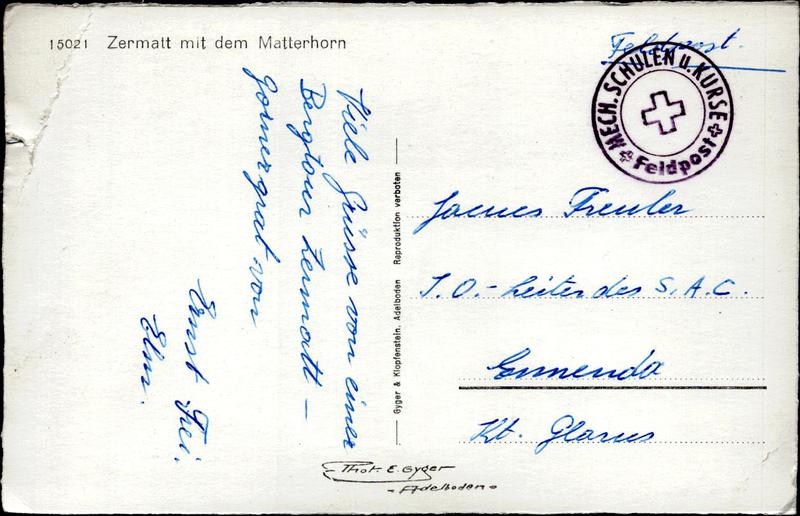 15021 Zermatt mit dem Matterhorn
Viele Grüsse von einer
Bergtour Zermatt –
Gornergrat von
Ernst Frei.
Elm.
Gyger & Klopfenstein, Adelboden Reproduktion verboten
Feldpost.
MECH. SCHULEN u. KURSE
Feldpost
Freuler
J. O. - Leiter des S. A. C.
Ennenda
Kt. Glarus
Phot. E. Gyger
- Adelboden -